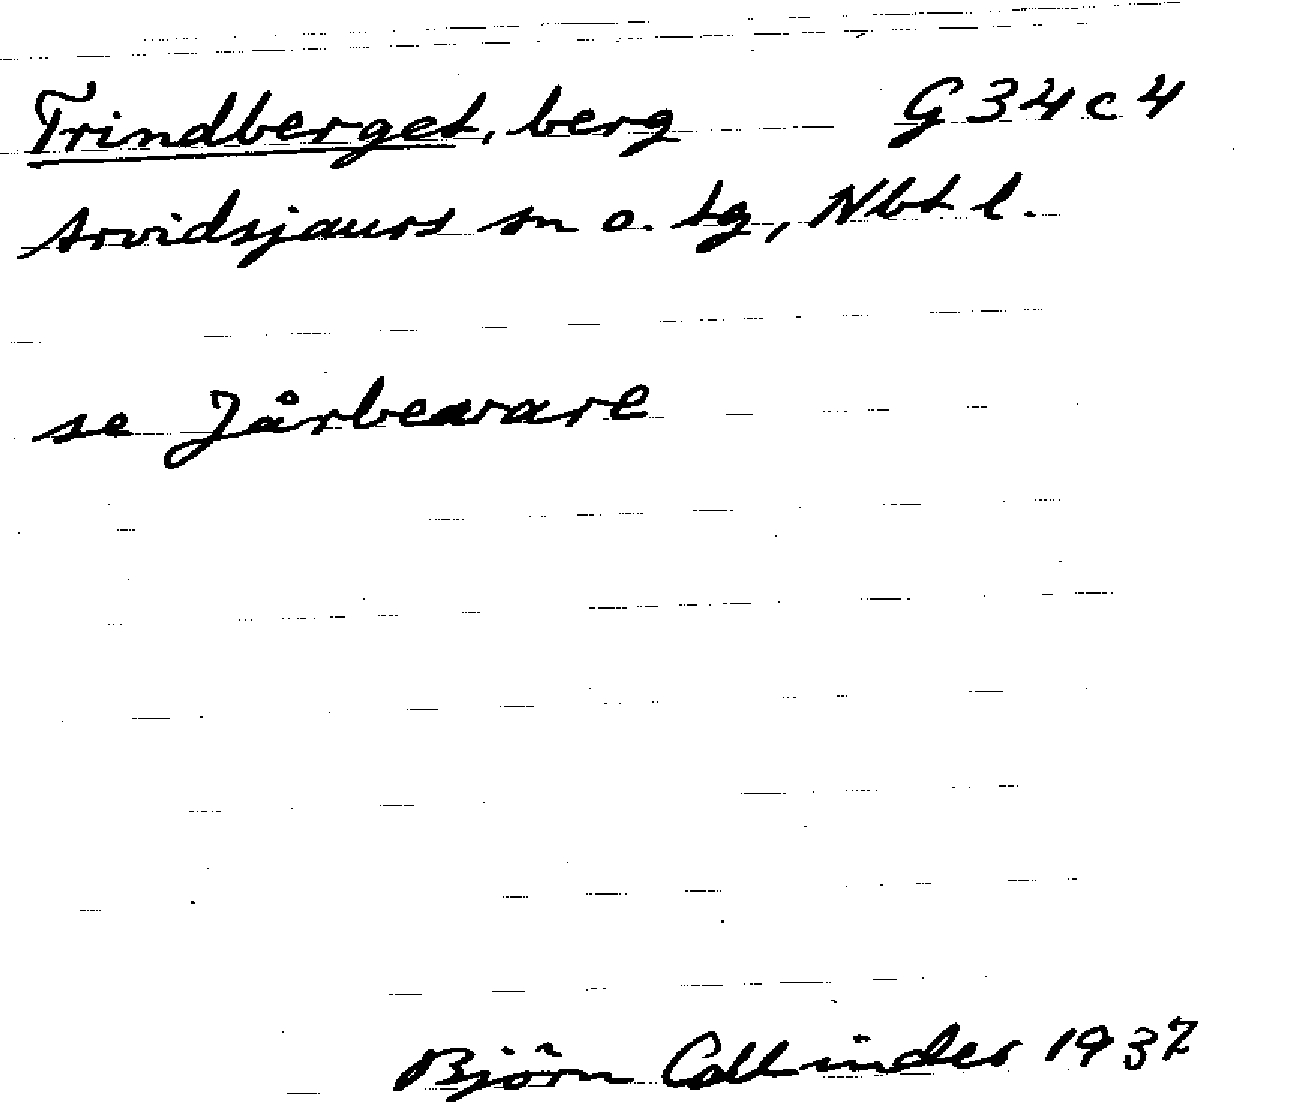 Trindberget, berg G 34 c 4
Arvidsjaurs sn o. tg, Nbt l.
se Jårbevare
Björn Collinder 1937